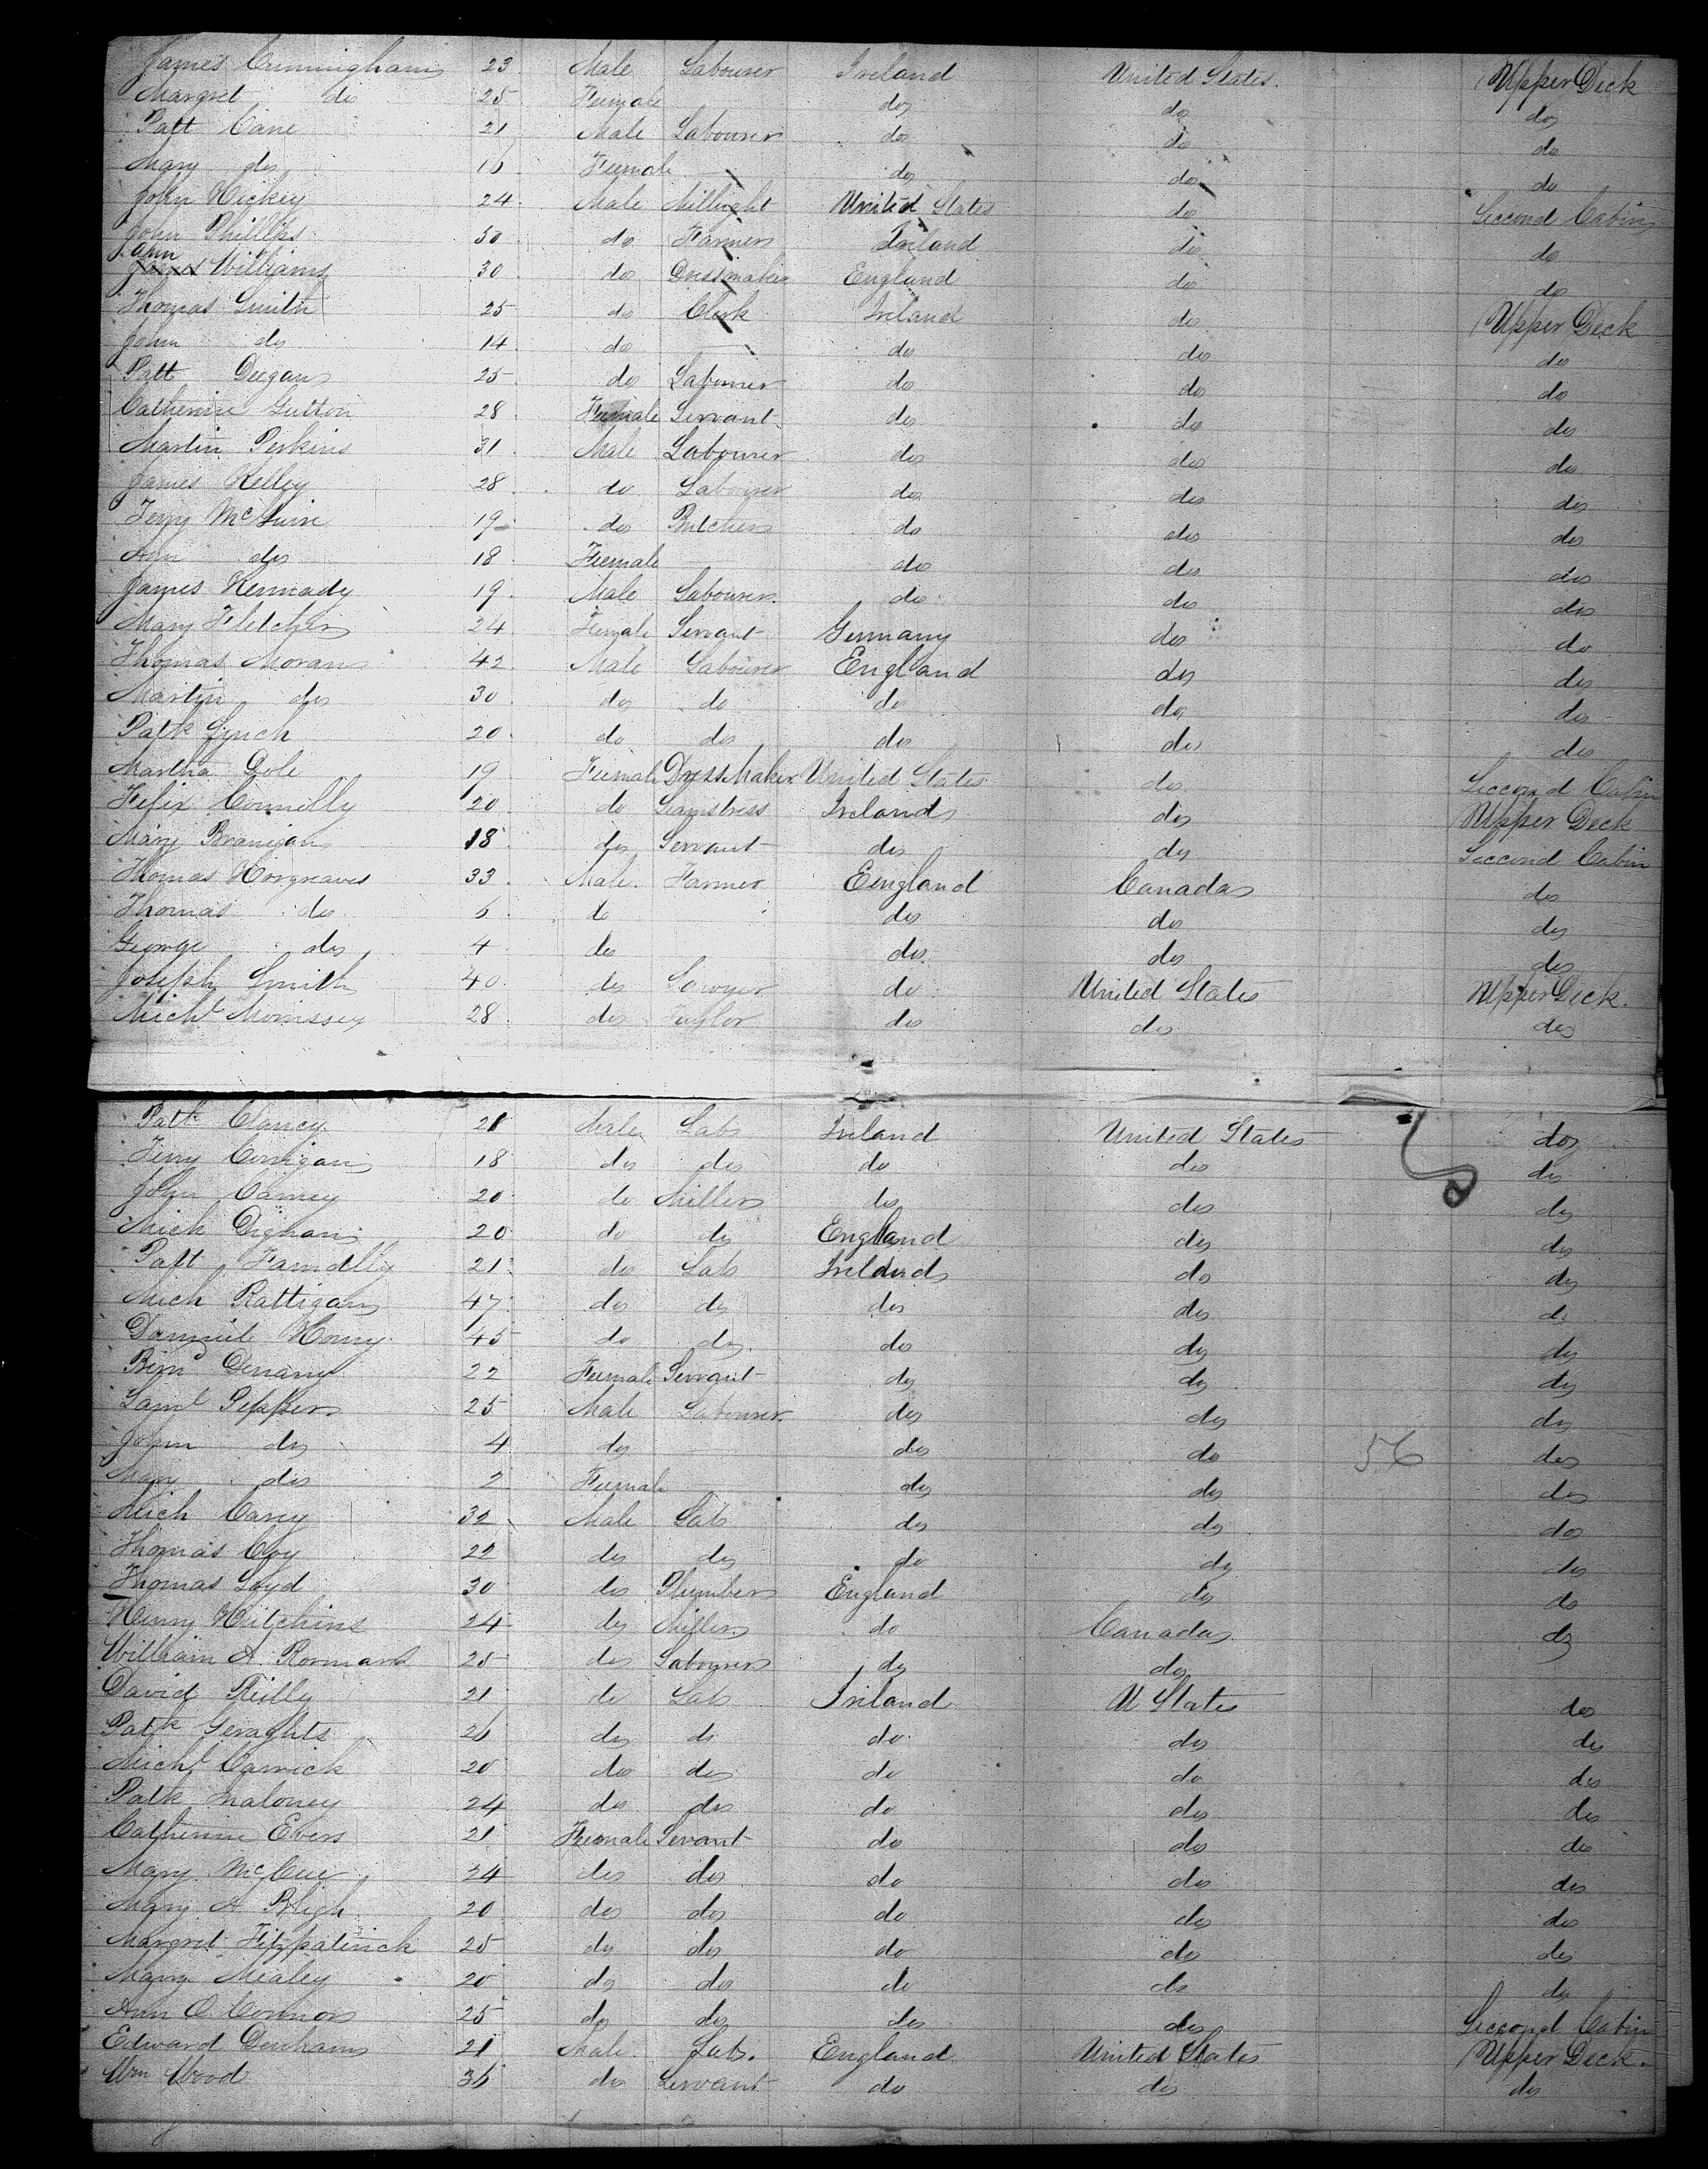 James Cunningham 23 Male Labourer Ireland United States. Upper Deck
Margret do 25 Female do do do
Patt Cane 21 Male Labourer do do do
Mary do 16 Female do do do
John Hickey 24 Male Millright United States do Second Cabin
John Phillips 30 do Farmer Ireland do do
Ann Williams 30 do Dressmaker England do do
Thomas Smith 25 do Clerk Ireland do Upper Deck
John do 14 do do do do
Patt Deegan 25 do Labourer do do do
Catherine Gutton 28 Female Servant do do do
Martin Perkins 31 Male Labourer do do do
James Kelley 28 do Labourer do do do
Terry McGuire 19 do Butcher do do do
Ann do 18 Female do do do
James Kennady 19 Male Labourer do do do
Mary Fletcher 24 Female Servant Germany do do
Thomas Moran 42 Male Labourer England do do
Martin do 30 do do do do do
Patk Lynch 20 do do do do do
Martha Dole 19 Female DressMaker United States do Second Cabin
Felix Connolly 20 do Seamstress Ireland do Upper Deck
Mary Branigan 18 do Servant do do Second Cabin
Thomas Horgraves 33 Male Farmer England Canada do
Thomas do 6 do do do do
George do 4 do do do do
Joseph Smith 40 do Sawyer do United States Upper Deck.
Michl Morrissey 28 do Taylor do do do
Patk Clancy 21 Male Lab Ireland United States do
Terry Corrigan 18 do do do do do
John Carney 20 do Miller do do do
Mick Dignan 20 do do England do do
Patt 21 do Lab Ireland do do
Mich Rattigan 47 do do do do do
Danniel 45 do do do do do
22 Female Servant do do do
Saml Pepper 25 Male Labourer do do do
John do 4 do do do 56 do
Mary do 2 Female do do do
Mich Carey 32 Male Lab do do do
Thomas Coy 22 do do do do do
Thomas Loyd 30 do Plumber England do do
Henry Hutchins 24 do Miller do Canada do
William A. 25 do Labourer do do
David Reilly 21 do Lab Ireland U States do
Patk Geraghts 26 do do do do do
Michl Carrick 20 do do do do do
Patk Maloney 24 do do do do do
Catherine Evers 21 Female Servant do do do
Mary McCue 24 do do do do do
Mary A Bligh 20 do do do do do
Margret Fitzpatrick 25 do do do do do
Mary Mealey 20 do do do do do
Ann O Connor 25 do do do do Second Cabin
Edward Denham 21 Male Lab. England United States Upper Deck.
Wm Wood 36 do Servant do do do